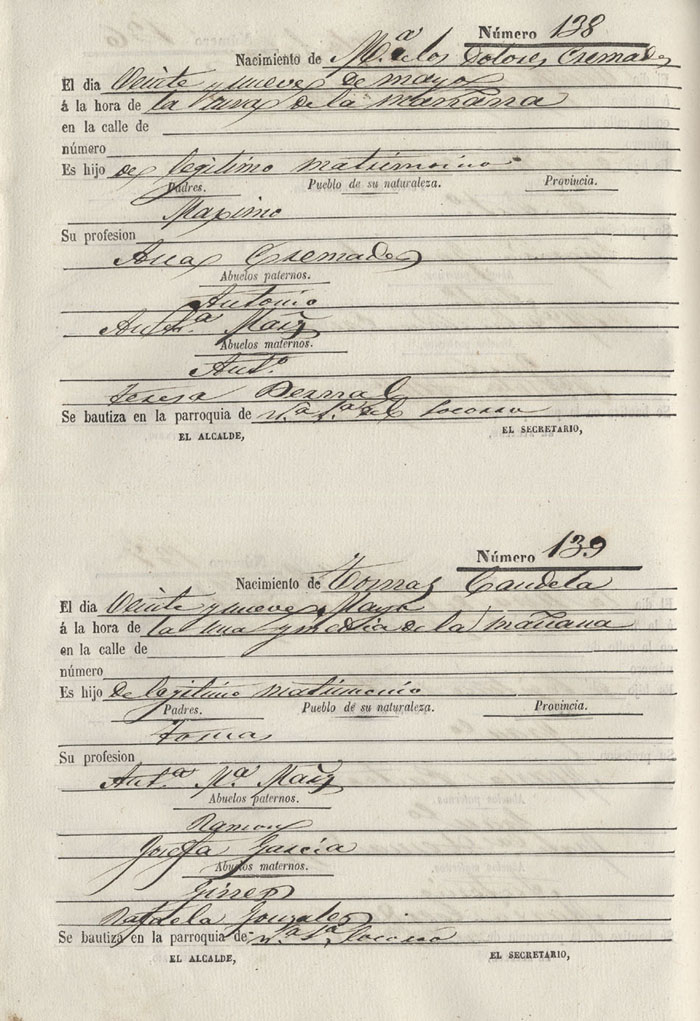 Número 138
Nacimiento de M.ª de los Dolores Cremades
El dia Veinte y nueve de mayo
á la hora de la una de la mañana
en la calle de
número
Es hijo de legitimo matrimonio
Padres. Pueblo de su naturaleza. Provincia.
Maximo
Su profesion
Ana Cremades
Abuelos paternos.
Antonio
Ant.ª Mañz
Abuelos maternos.
Ant.º
Teresa Bernal
Se bautiza en la parroquia de N.ª S.ª del Socorro
EL ALCALDE, EL SECRETARIO,
Número 139
Nacimiento de Tomas Candela
El dia Veinte y nueve Mayo
á la hora de la una y media de la mañana
en la calle de
número
Es hijo de legitimo matrimonio
Padres. Pueblo de su naturaleza. Provincia.
Tomas
Su profesion
Ant.ª M.ª Mañz
Abuelos paternos.
Ramon
Josefa Garcia
Abuelos maternos.
Gines
Rafaela Gonzalez
Se bautiza en la parroquia de N.ª S.ª Socorro
EL ALCALDE, EL SECRETARIO,